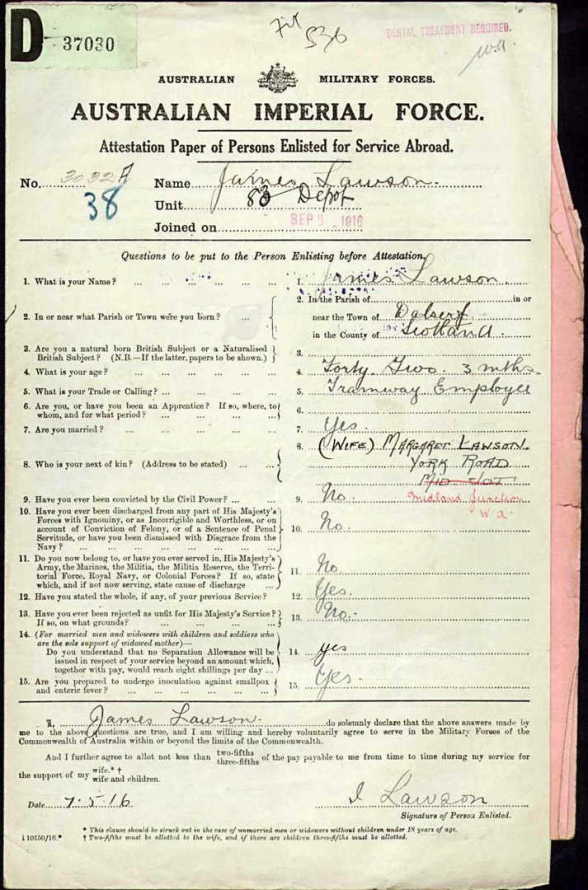 D 37030
536
DENTAL TREATMENT REQUIRED.
AUSTRALIAN MILITARY FORCES.
AUSTRALIAN IMPERIAL FORCE.
Attestation Paper of Persons Enlisted for Service Abroad.
No. 3032A
38
Name James Lawson.
Unit 83 Depot
Joined on SEP 1916
Questions to be put to the Person Enlisting before Attestation.
1. What is your Name? ... 1. James Lawson
2. In or near what Parish or Town were you born? ... 2. In the Parish of in or
near the Town of Dalserf
in the County of Scotland
3. Are you a natural born British Subject or a Naturalised
British Subject? (N.B.—If the latter, papers to be shown.) 3.
4. What is your age? ... 4. Forty Two 3 mths
5. What is your Trade or Calling? ... 5. Tramway Employee
6. Are you, or have you been an Apprentice? If so, where, to
whom, and for what period? ... 6.
7. Are you married? ... 7. Yes.
8. Who is your next of kin? (Address to be stated) ... 8. (WIFE) MARGARET LAWSON.
YORK ROAD
Midland Junction
W.A.
9. Have you ever been convicted by the Civil Power? ... 9. No.
10. Have you ever been discharged from any part of His Majesty's
Forces with Ignominy, or as Incorrigible and Worthless, or on
account of Conviction of Felony, or of a Sentence of Penal
Servitude, or have you been dismissed with Disgrace from the
Navy? ... 10. No.
11. Do you now belong to, or have you ever served in, His Majesty's
Army, the Marines, the Militia, the Militia Reserve, the Terri-
torial Force, Royal Navy, or Colonial Forces? If so, state
which, and if not now serving, state cause of discharge 11. No
12. Have you stated the whole, if any, of your previous Service? 12. Yes.
13. Have you ever been rejected as unfit for His Majesty's Service?
If so, on what grounds? ... 13. No.
14. (For married men and widowers with children and soldiers who
are the sole support of widowed mother)—
Do you understand that no Separation Allowance will be
issued in respect of your service beyond an amount which,
together with pay, would reach eight shillings per day ... 14. yes
15. Are you prepared to undergo inoculation against smallpox
and enteric fever? ... 15. Yes.
I, James Lawson do solemnly declare that the above answers made by
me to the above questions are true, and I am willing and hereby voluntarily agree to serve in the Military Forces of the
Commonwealth of Australia within or beyond the limits of the Commonwealth.
And I further agree to allot not less than two-fifths three-fifths of the pay payable to me from time to time during my service for
the support of my wife.* † wife and children.
Date 7.5.16
J Lawson
Signature of Person Enlisted.
* This clause should be struck out in the case of unmarried men or widowers without children under 18 years of age.
† Two-fifths must be allotted to the wife, and if there are children three-fifths must be allotted.